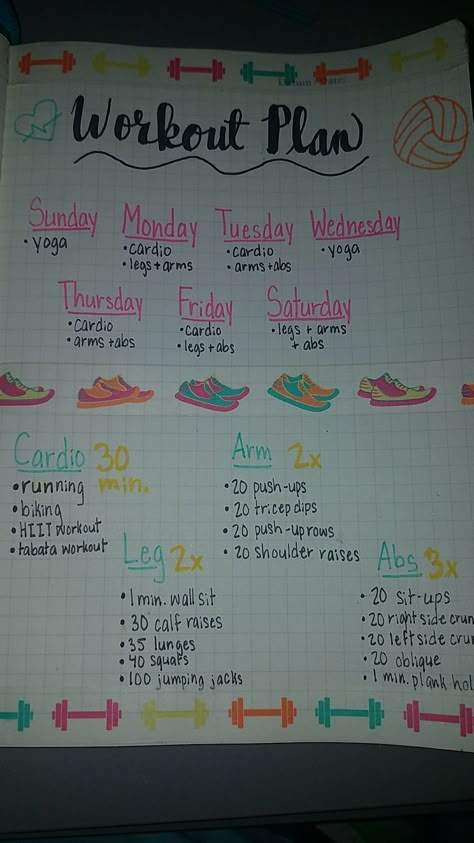 Workout Plan
Sunday
• yoga
Monday
• cardio
• legs + arms
Tuesday
• cardio
• arms + abs
Wednesday
• yoga
Thursday
• cardio
• arms + abs
Friday
• cardio
• legs + abs
Saturday
• legs + arms
+ abs
Cardio 30 min.
• running
• biking
• HIIT workout
• tabata workout
Arm 2x
• 20 push-ups
• 20 tricep dips
• 20 push-up rows
• 20 shoulder raises
Leg 2x
• 1 min. wall sit
• 30 calf raises
• 35 lunges
• 40 squats
• 100 jumping jacks
Abs 3x
• 20 sit-ups
• 20 right side crun
• 20 left side crun
• 20 oblique
• 1 min. plank hol